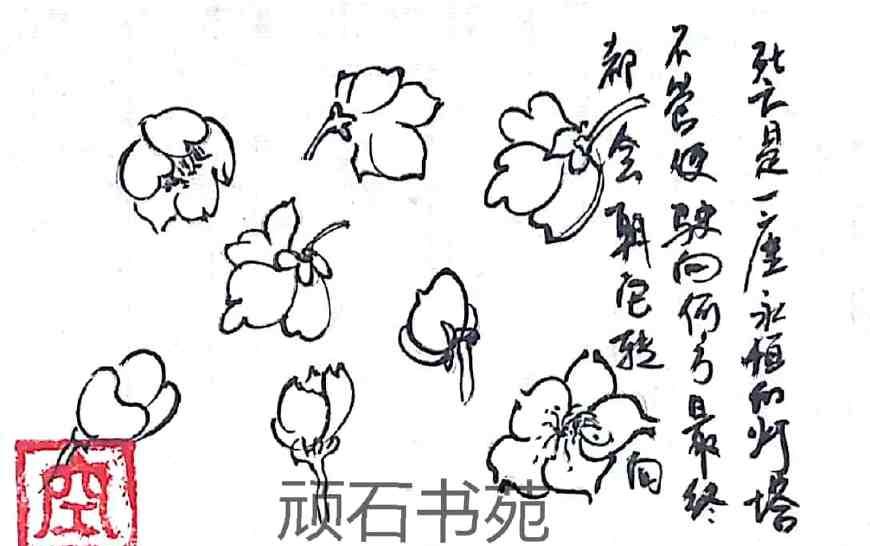 死亡是一座永恒的灯塔
不管你驶向何方最终
都会朝它转向
空
顽石书苑